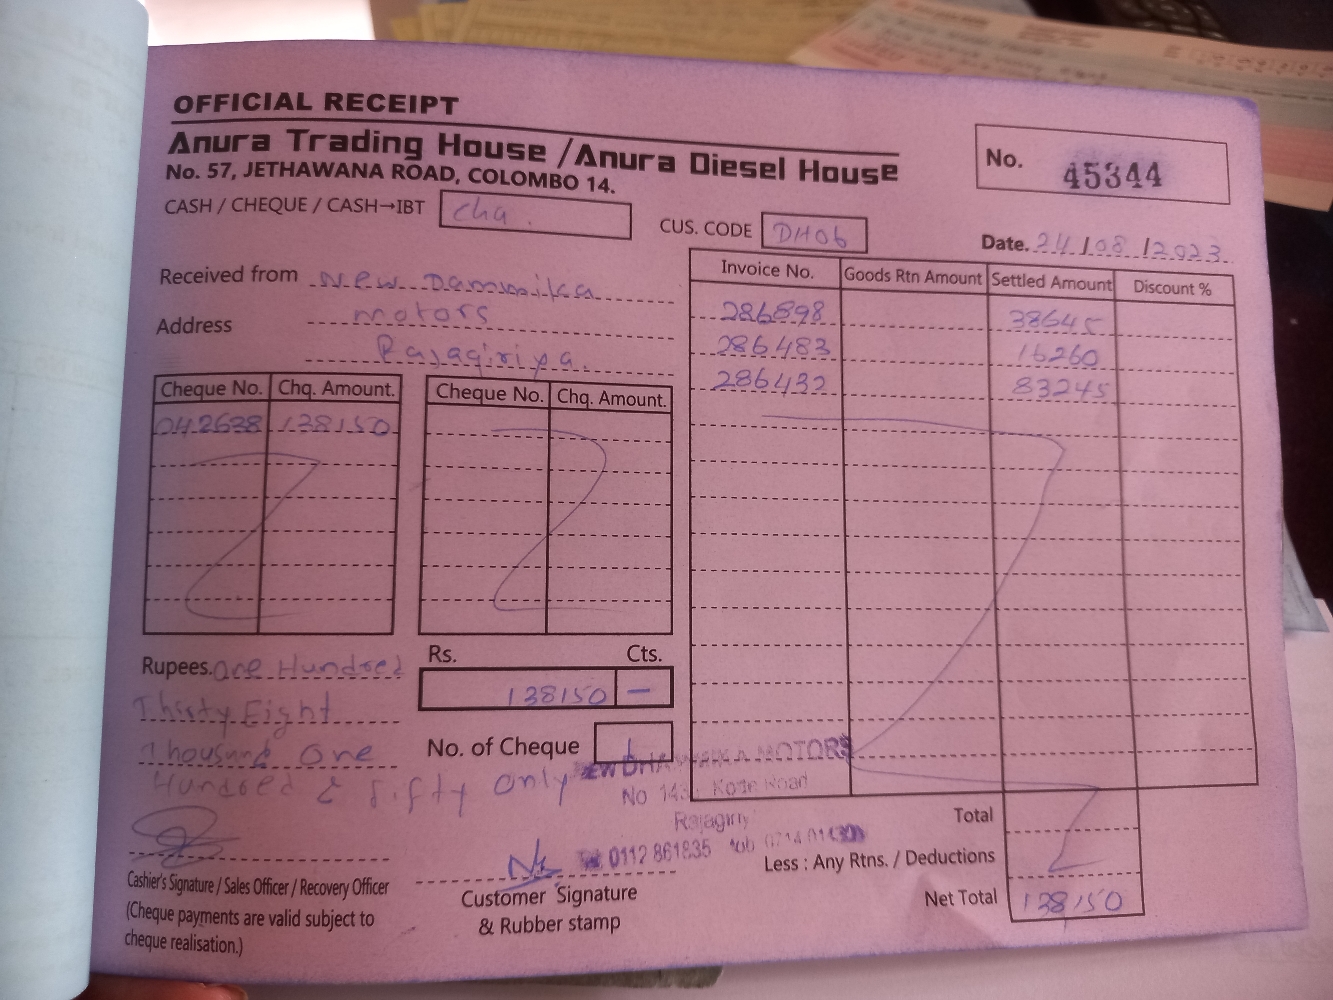 OFFICIAL RECEIPT
Anura Trading House / Anura Diesel House
No. 57, JETHAWANA ROAD, COLOMBO 14.
No. 45344
CASH / CHEQUE / CASH→IBT chq.
CUS. CODE DH06
Date. 24/08/2023
Received from New Dammika
motors
Address
Rajagiriya.
Invoice No. Goods Rtn Amount Settled Amount Discount %
286898 38645
286483 16260
286432 83245
Cheque No. Chq. Amount. Cheque No. Chq. Amount.
042638 138150
Rupees. one Hundred
Thirty Eight
Thousand one
Hundred & fifty only
Rs. Cts.
138150 —
No. of Cheque 1
MOTORS
No 143 Kotte Road
Rajagiriy
Tel: 0112 861835 Mob
Total
Less : Any Rtns. / Deductions
Net Total 138150
Cashier's Signature / Sales Officer / Recovery Officer
(Cheque payments are valid subject to
cheque realisation.)
Customer Signature
& Rubber stamp